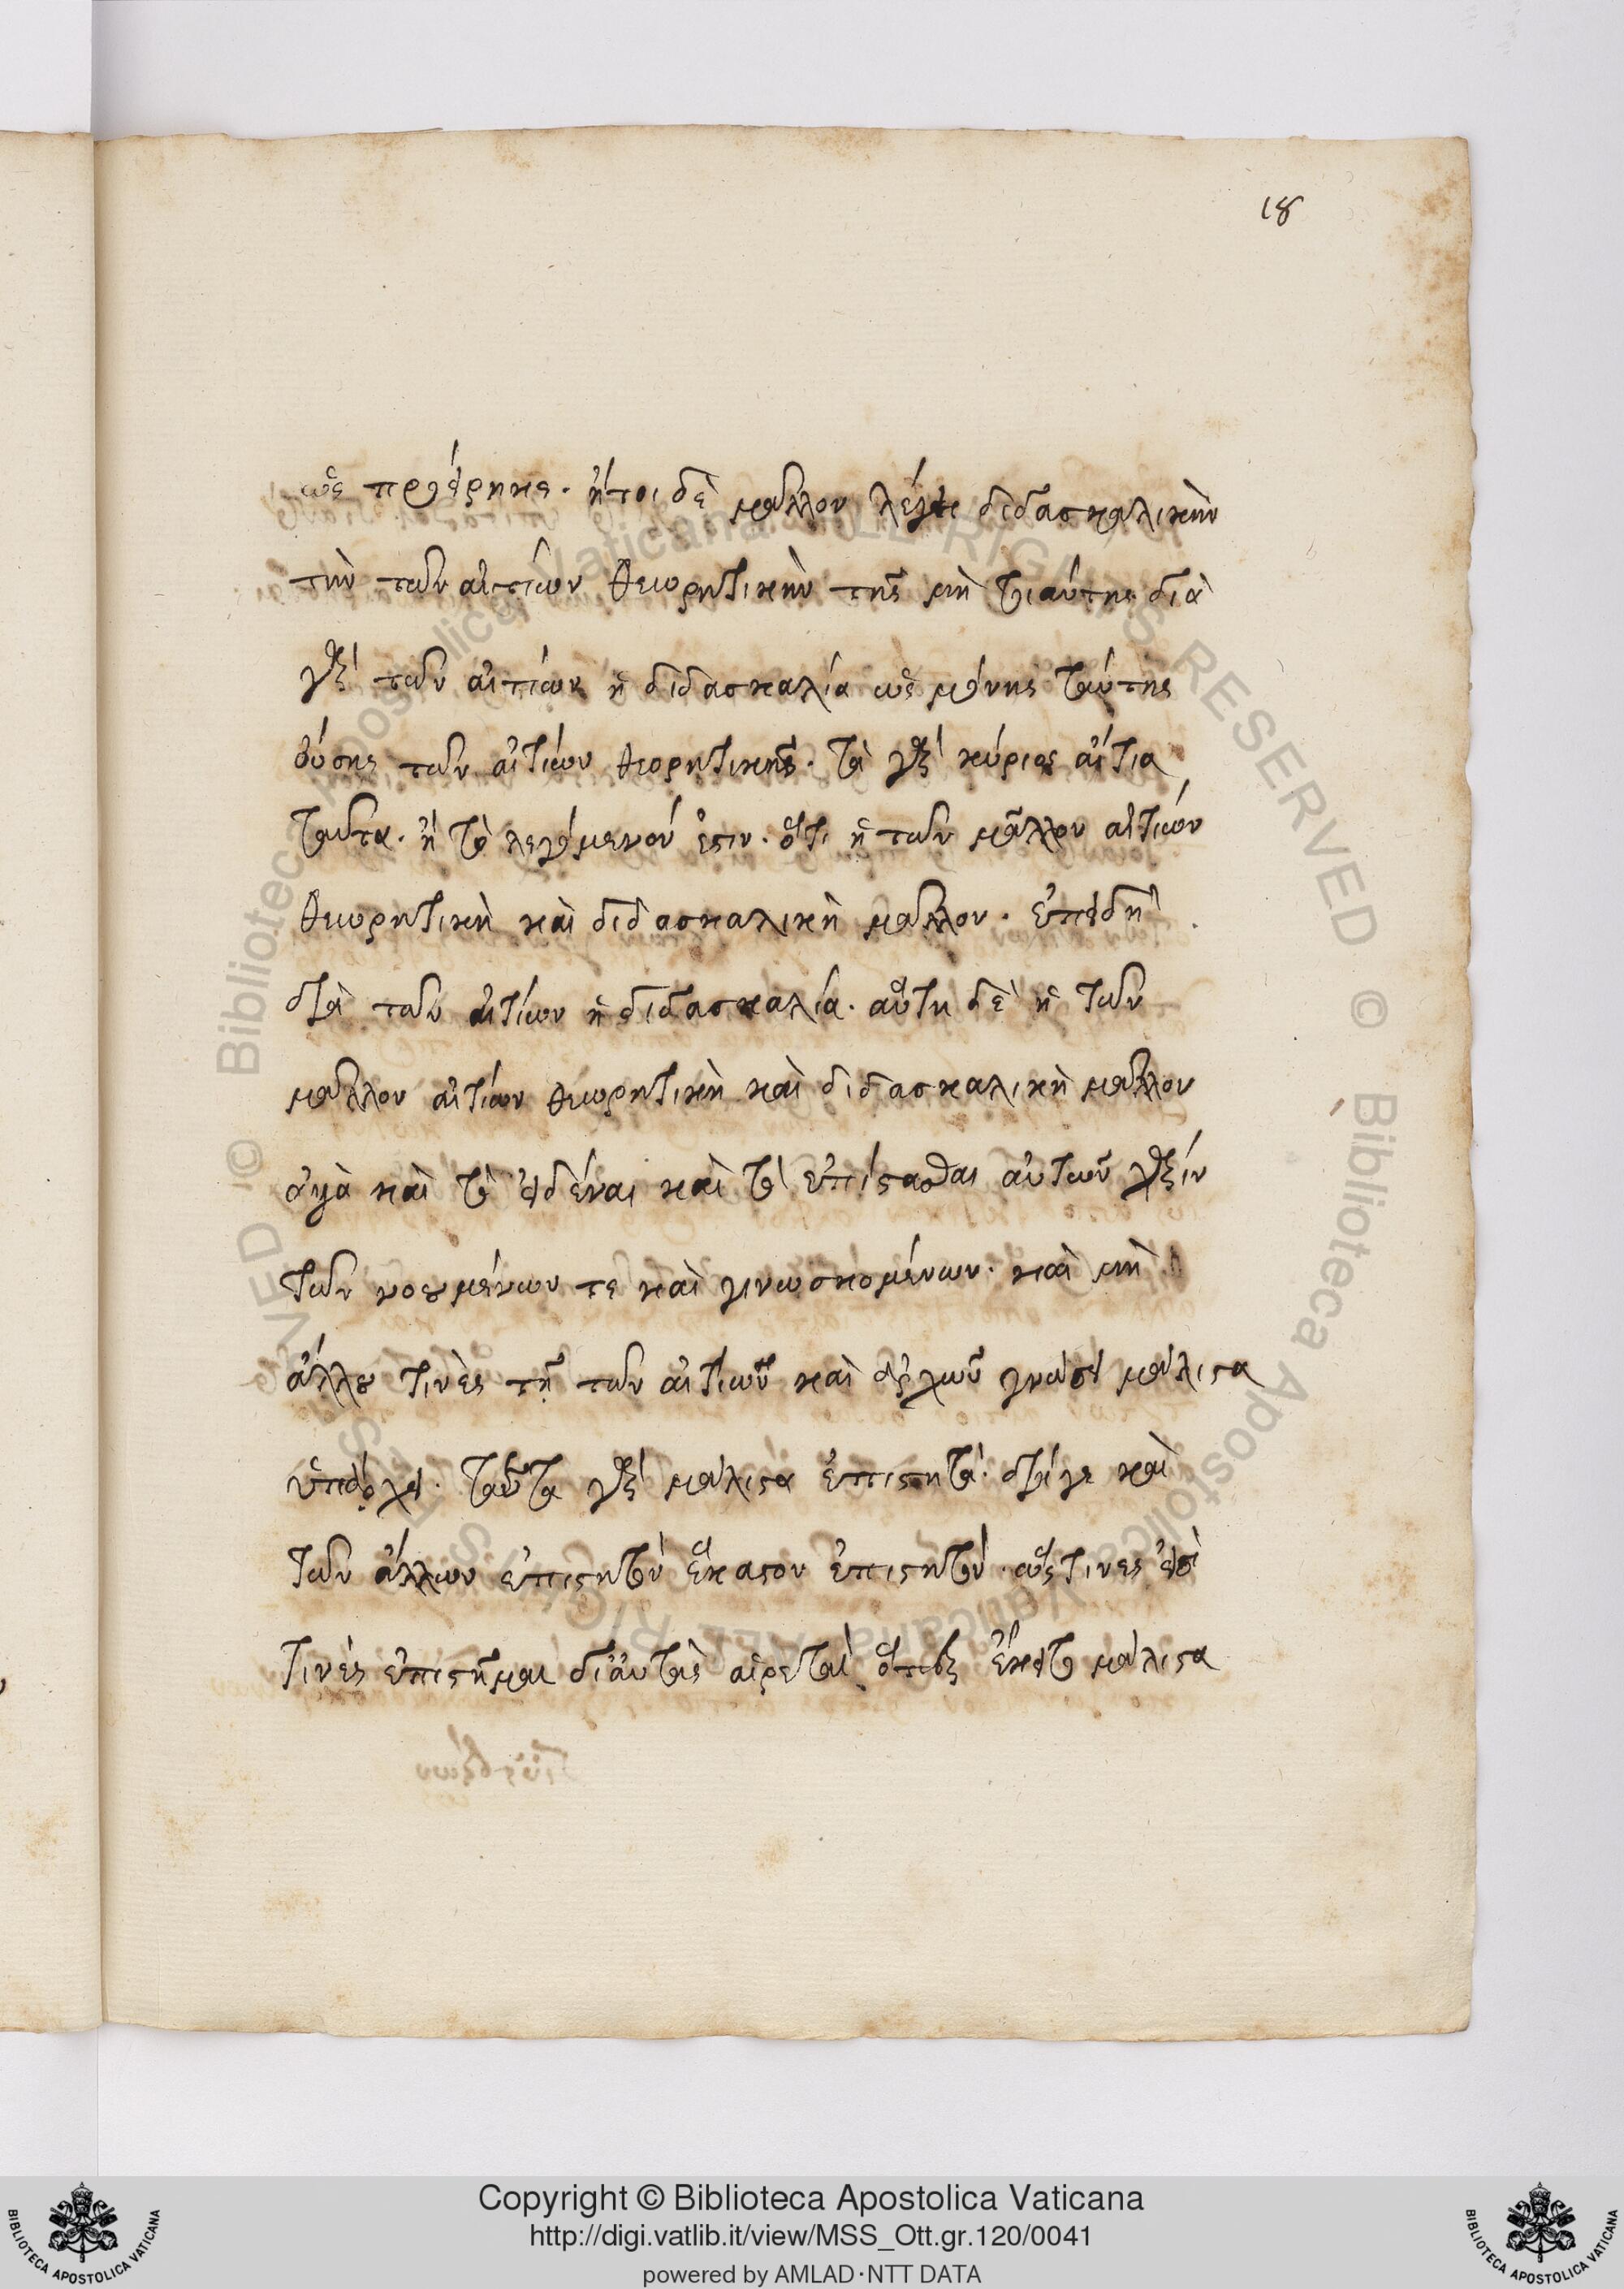 18
ὡς προείρηκε. ἤτοι δὲ μᾶλλον λέγει διδασκαλικὴν
τὴν τῶν αἰτίων θεωρητικὴν τῆς μὴ τοιαύτης διὰ
γὰρ τῶν αἰτίων ἡ διδασκαλία ὡς μόνης ταύτης
οὔσης τῶν αἰτίων θεορητικῆς. τὰ γὰρ κύριος αἴτια
ταῦτα. ἢ τὸ λεγόμενόν ἐστιν. ὅτι ἡ τῶν μᾶλλον αἰτιών
θεωρητικὴ καὶ διδασκαλικὴ μᾶλλον. ἐπειδὴ
διὰ τῶν αἰτίων ἡ διδασκαλία. αὕτη δὲ ἡ τῶν
μᾶλλον αἰτίων θεωρητικὴ καὶ διδασκαλικὴ μᾶλλον
ἀλλὰ καὶ τὸ εἰδέναι καὶ τὸ ἐπίστασθαι αὐτῶν χάριν
τῶν νοουμένων τε καὶ γινωσκομένων. καὶ μὴ
ἄλλου τινὲς τῆ τῶν αἰτιῶν καὶ ἀρχῶν γνώσει μάλιστα
ὑπάρχει. ταῦτα γὰρ μάλιστα ἐπιστητά. διά γε καὶ
τῶν ἄλλων ἐπιστητόν ἕκαστον ἐπιστητόν. ὥς τινες εἰσὶ
τινὲς ἐπιστῆμαι δι' αὐτὰς αἱρεταὶ ὅπερ ἐκεῖτο μάλιστα
Copyright © Biblioteca Apostolica Vaticana
http://digi.vatlib.it/view/MSS_Ott.gr.120/0041
powered by AMLAD·NTT DATA
BIBLIOTECA APOSTOLICA VATICANA
BIBLIOTECA APOSTOLICA VATICANA